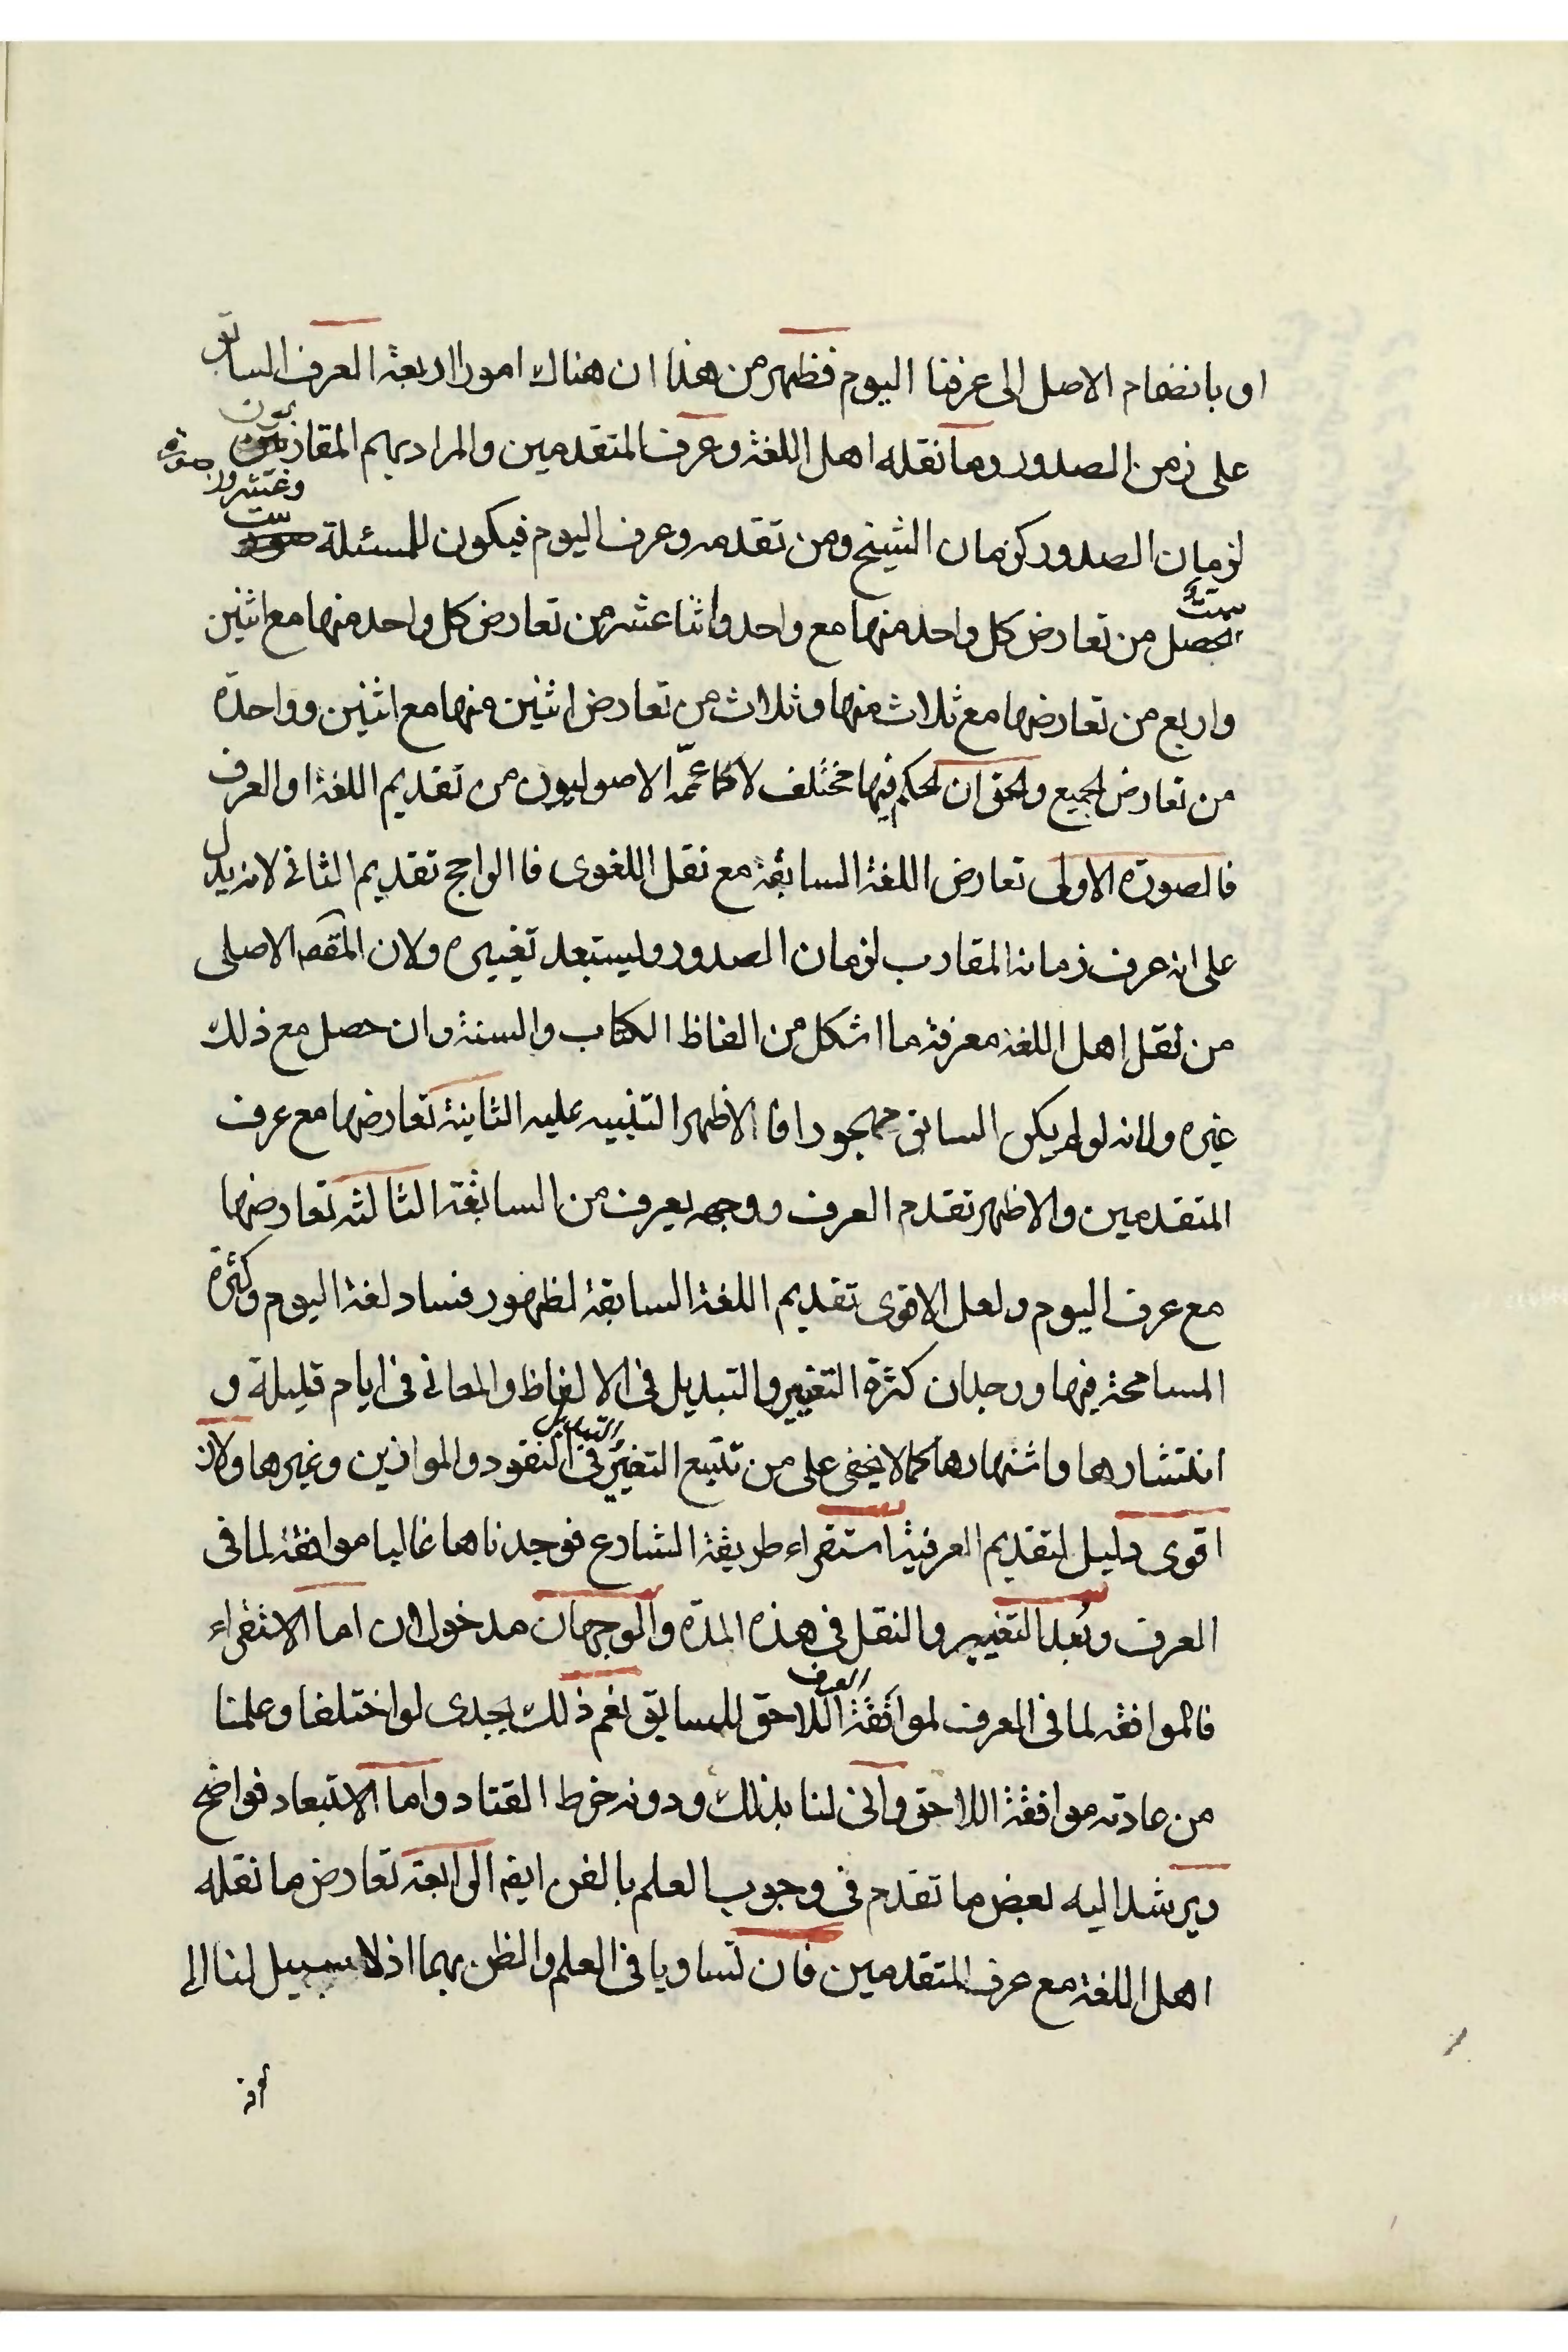 او بانضمام الاصل الى عرفنا اليوم فظهر من هذا ان هناك امورا اربعة العرف السابق
على زمن الصدور وما نقله اهل اللغة وعرف المتقدمين والمراد بهم المقاربون
لزمان الصدور كزمان الشيخ ومن تقدمه وعرف اليوم فيكون للمسئلة ست وعشرون صورة
ستة تحصل من تعارض كل واحد منها مع واحد واثنا عشر من تعارض كل واحد منها مع اثنين
واربع من تعارضها مع ثلاث منها وثلاث من تعارض اثنين منها مع اثنين وواحدة
من تعارض الجميع والحق ان الحكم فيها مختلف لا كما عمّه الاصوليون من تقديم اللغة او العرف
فالصورة الاولى تعارض اللغة السابقة مع نقل اللغوى فالراجح تقديم الثانى لانه يدل
على انه عرف زمانه المقارب لزمان الصدور وليستبعد تغييره ولان المقصد الاصلى
من نقل اهل اللغة معرفة ما اشكل من الفاظ الكتاب والسنة وان حصل مع ذلك
غيره ولانه لو لم يكن السابق مهجورا فالاظهر التنبيه عليه الثانية تعارضها مع عرف
المتقدمين والاظهر تقدم العرف ووجهه يعرف من السابقة الثالثة تعارضها
مع عرف اليوم ولعل الاقوى تقديم اللغة السابقة لظهور فساد لغة اليوم وكثرة
المسامحة فيها ووجدان كثرة التغيير والتبديل فى الالفاظ والمعانى فى ايام قليلة و
انتشارها واشتهارها كما لا يخفى على من تتبع التغيّر والتبديل فى النقود والموازين وغيرها ولان
اقوى دليل لتقديم العرفية استقراء طريقة الشارع فوجدناها غالبا موافقة لما فى
العرف وبُعد التغيير والنقل فى هذه المدة والوجهان مدخولان اما الاستقراء
فالموافقة لما فى العرف لموافقة العرف اللاحق للسابق نعم ذلك يجدى لو اختلفا وعلمنا
من عادته موافقة اللاحق وانّى لنا بذلك ودونه خرط القتاد واما الاستبعاد فواضح
ويرشد اليه بعض ما تقدم فى وجوب العلم بالفن ايضا الرابعة تعارض ما نقله
اهل اللغة مع عرف المتقدمين فان تساويا فى العلم والظن بهما اذ لا سبيل لنا الى